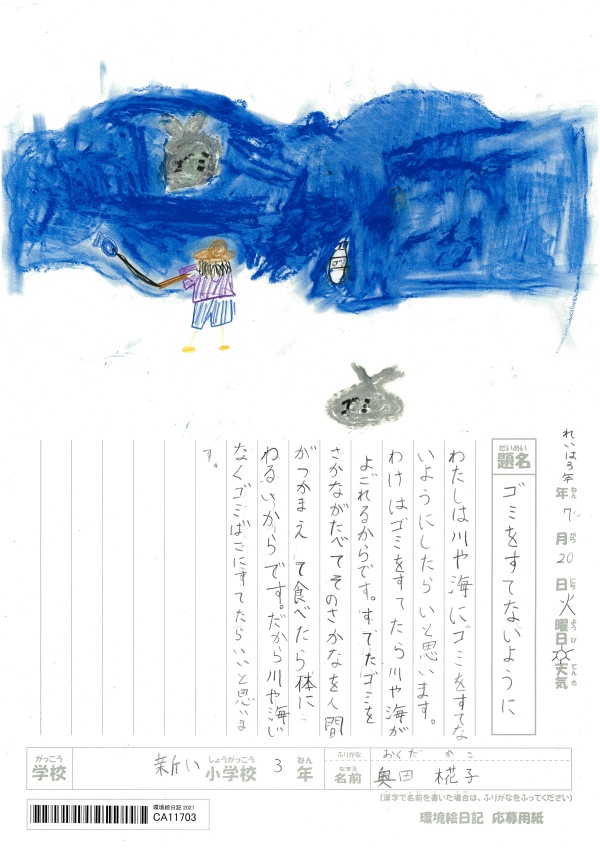 ゴミ
ゴミ
れいは3年
年 ねん
7 月 がつ
20 日 にち
火 曜日 ようび
天気 てんき
題名 だいめい
ゴミをすてないように
わたしは川や海にゴミをすてな
いようにしたらいと思います。
わけはゴミをすてたら川や海が
よごれるからです。すてたゴミを
さかながたべてそのさかなを人間
がつかまえて食べたら体に
わるいからです。だから川や海じ
なくゴミばこにすてたらいいと思いま
す。
がっこう
学校
新い
しょうがっこう
小学校
3
ねん
年
ふりがな
おくだ かこ
なまえ
名前
奥田 椛子
(漢字で名前を書いた場合は、ふりがなをふってください)
環境絵日記 2021
CA11703
環境絵日記 応募用紙